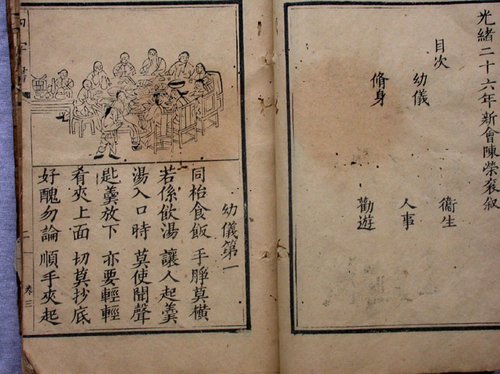 光緒二十六年新會陳榮袞叙
目次
衞生
幼儀
人事
脩身
勸遊
幼儀第一
同枱食飯 手踭莫橫
若係飲湯 讓人起羹
湯入口時 莫使聞聲
匙羹放下 亦要輕輕
肴夾上面 切莫抄底
好醜勿論 順手夾起
卷三